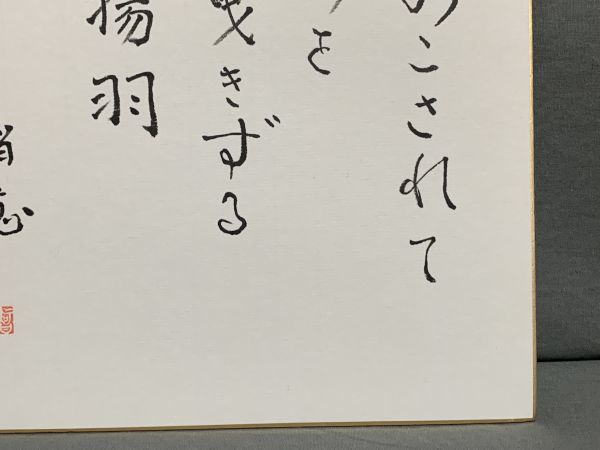 のこされて
を
曳きずる
揚羽